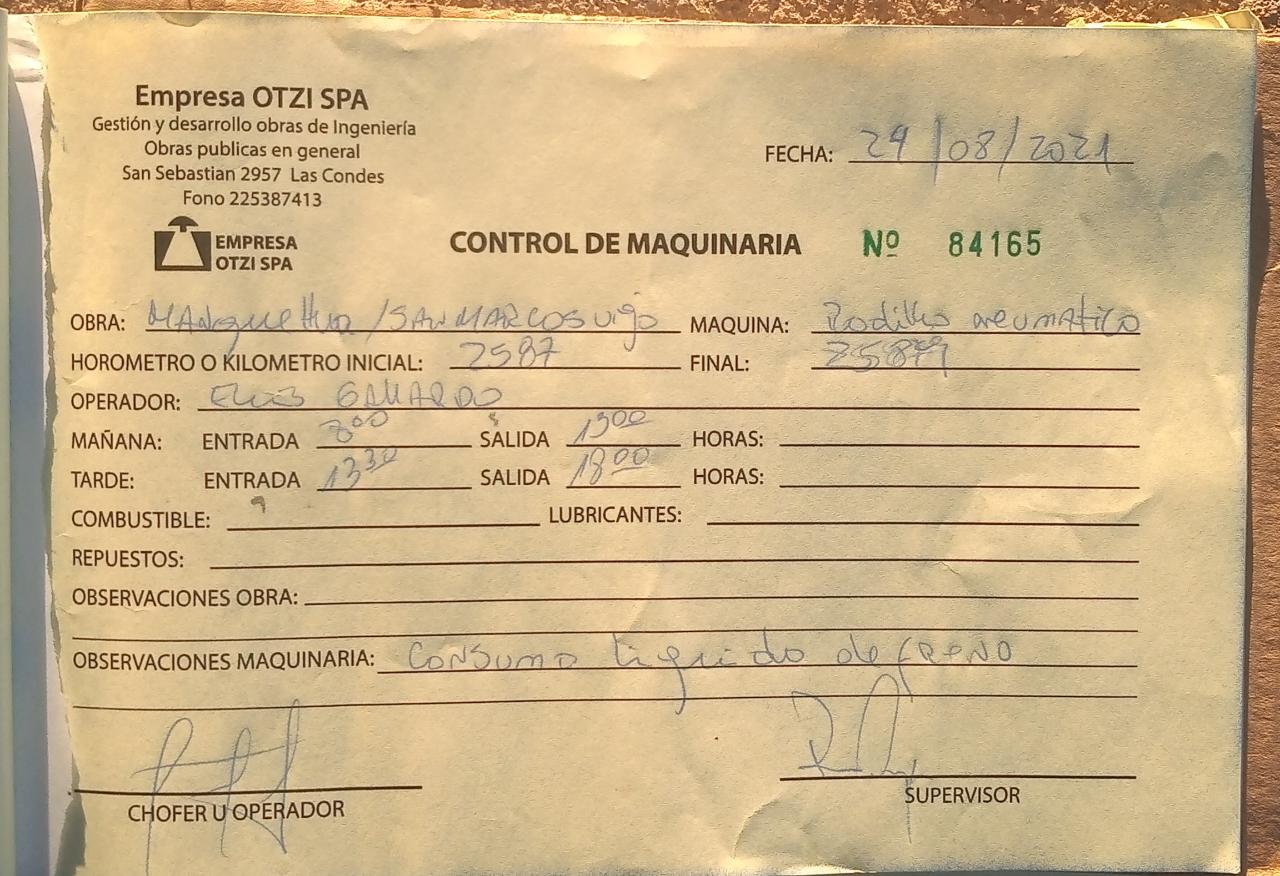 Empresa OTZI SPA
Gestión y desarrollo obras de Ingeniería
Obras publicas en general
San Sebastian 2957 Las Condes
Fono 225387413
EMPRESA
OTZI SPA
FECHA: 29/08/2021
CONTROL DE MAQUINARIA Nº 84165
OBRA: /SAN MARCOS MAQUINA: Rodillo neumatico
HOROMETRO O KILOMETRO INICIAL: 2587 FINAL:
OPERADOR:
MAÑANA: ENTRADA 800 SALIDA 1300 HORAS:
TARDE: ENTRADA 1330 SALIDA 1800 HORAS:
COMBUSTIBLE: LUBRICANTES:
REPUESTOS:
OBSERVACIONES OBRA:
OBSERVACIONES MAQUINARIA: Consumo liquido de freno
CHOFER U OPERADOR
SUPERVISOR